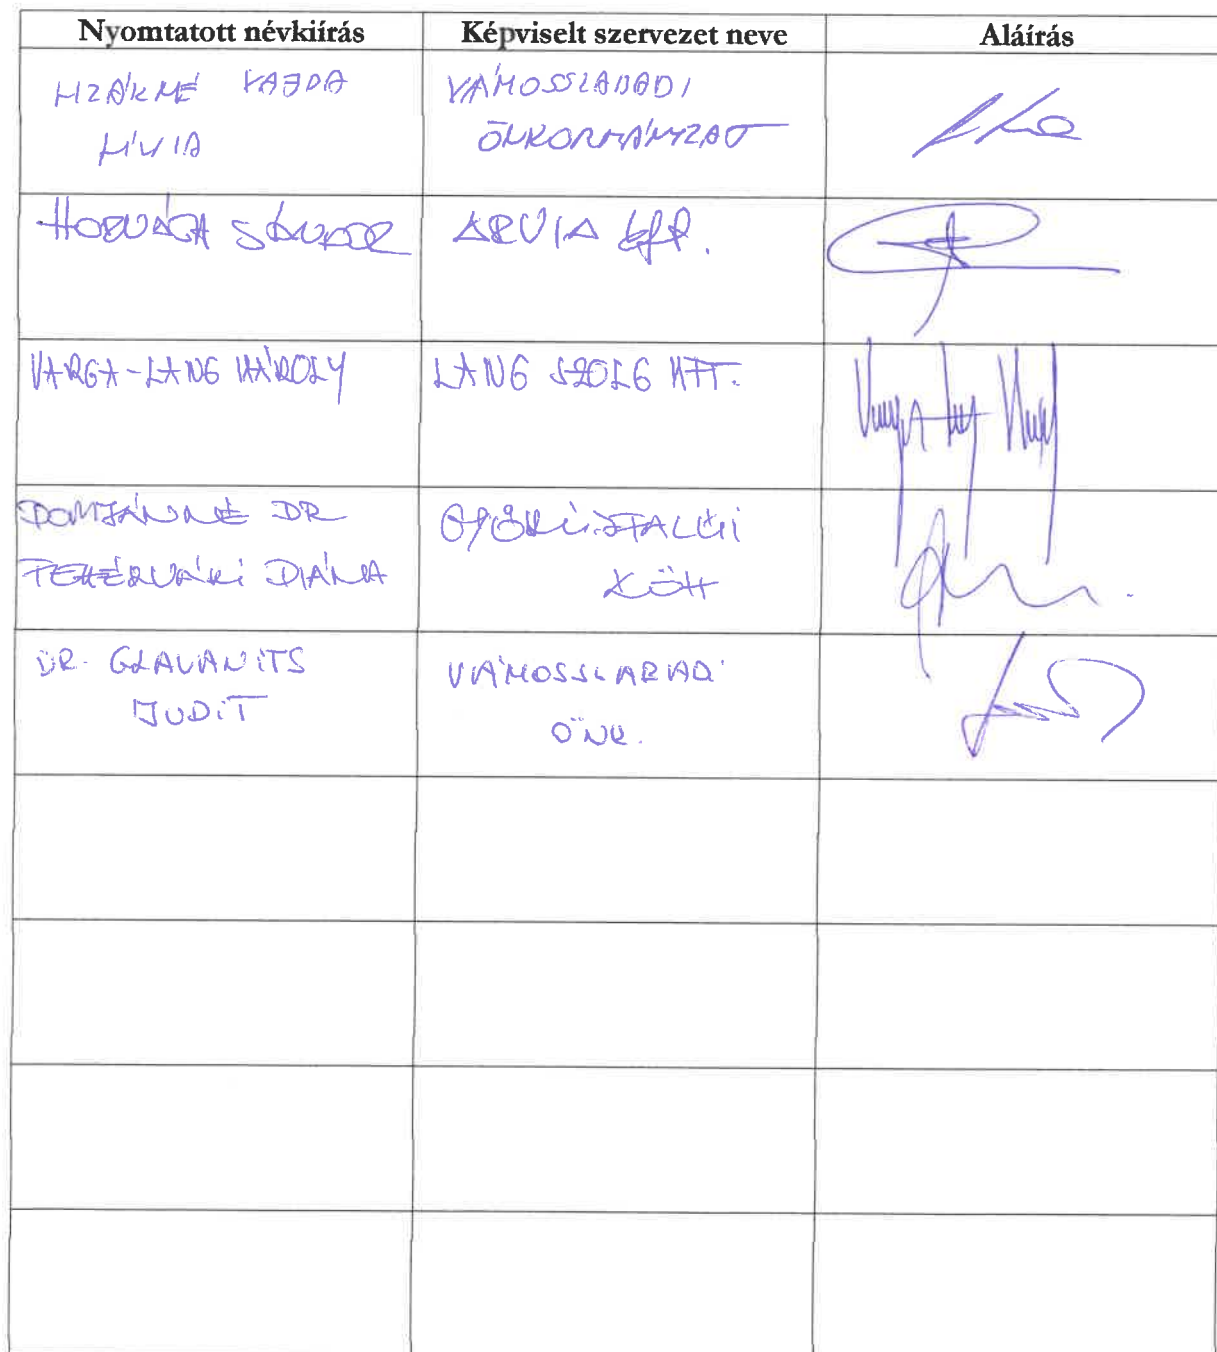 Nyomtatott névkiírás Képviselt szervezet neve Aláírás
VAJDA
LÍVIA
VÁMOSSZABADI
ÖNKORMÁNYZAT
HORVÁTH SÁNDOR ARVIA kft.
VARGA-LANG KÁROLY LANG SZOLG KFT.
DOMJÁNNÉ DR
FEHÉRVÁRI DIÁNA
GYŐRÚJFALUI
KÖH
DR. GLAVANITS
JUDIT
VÁMOSSZABADI
ÖNK.